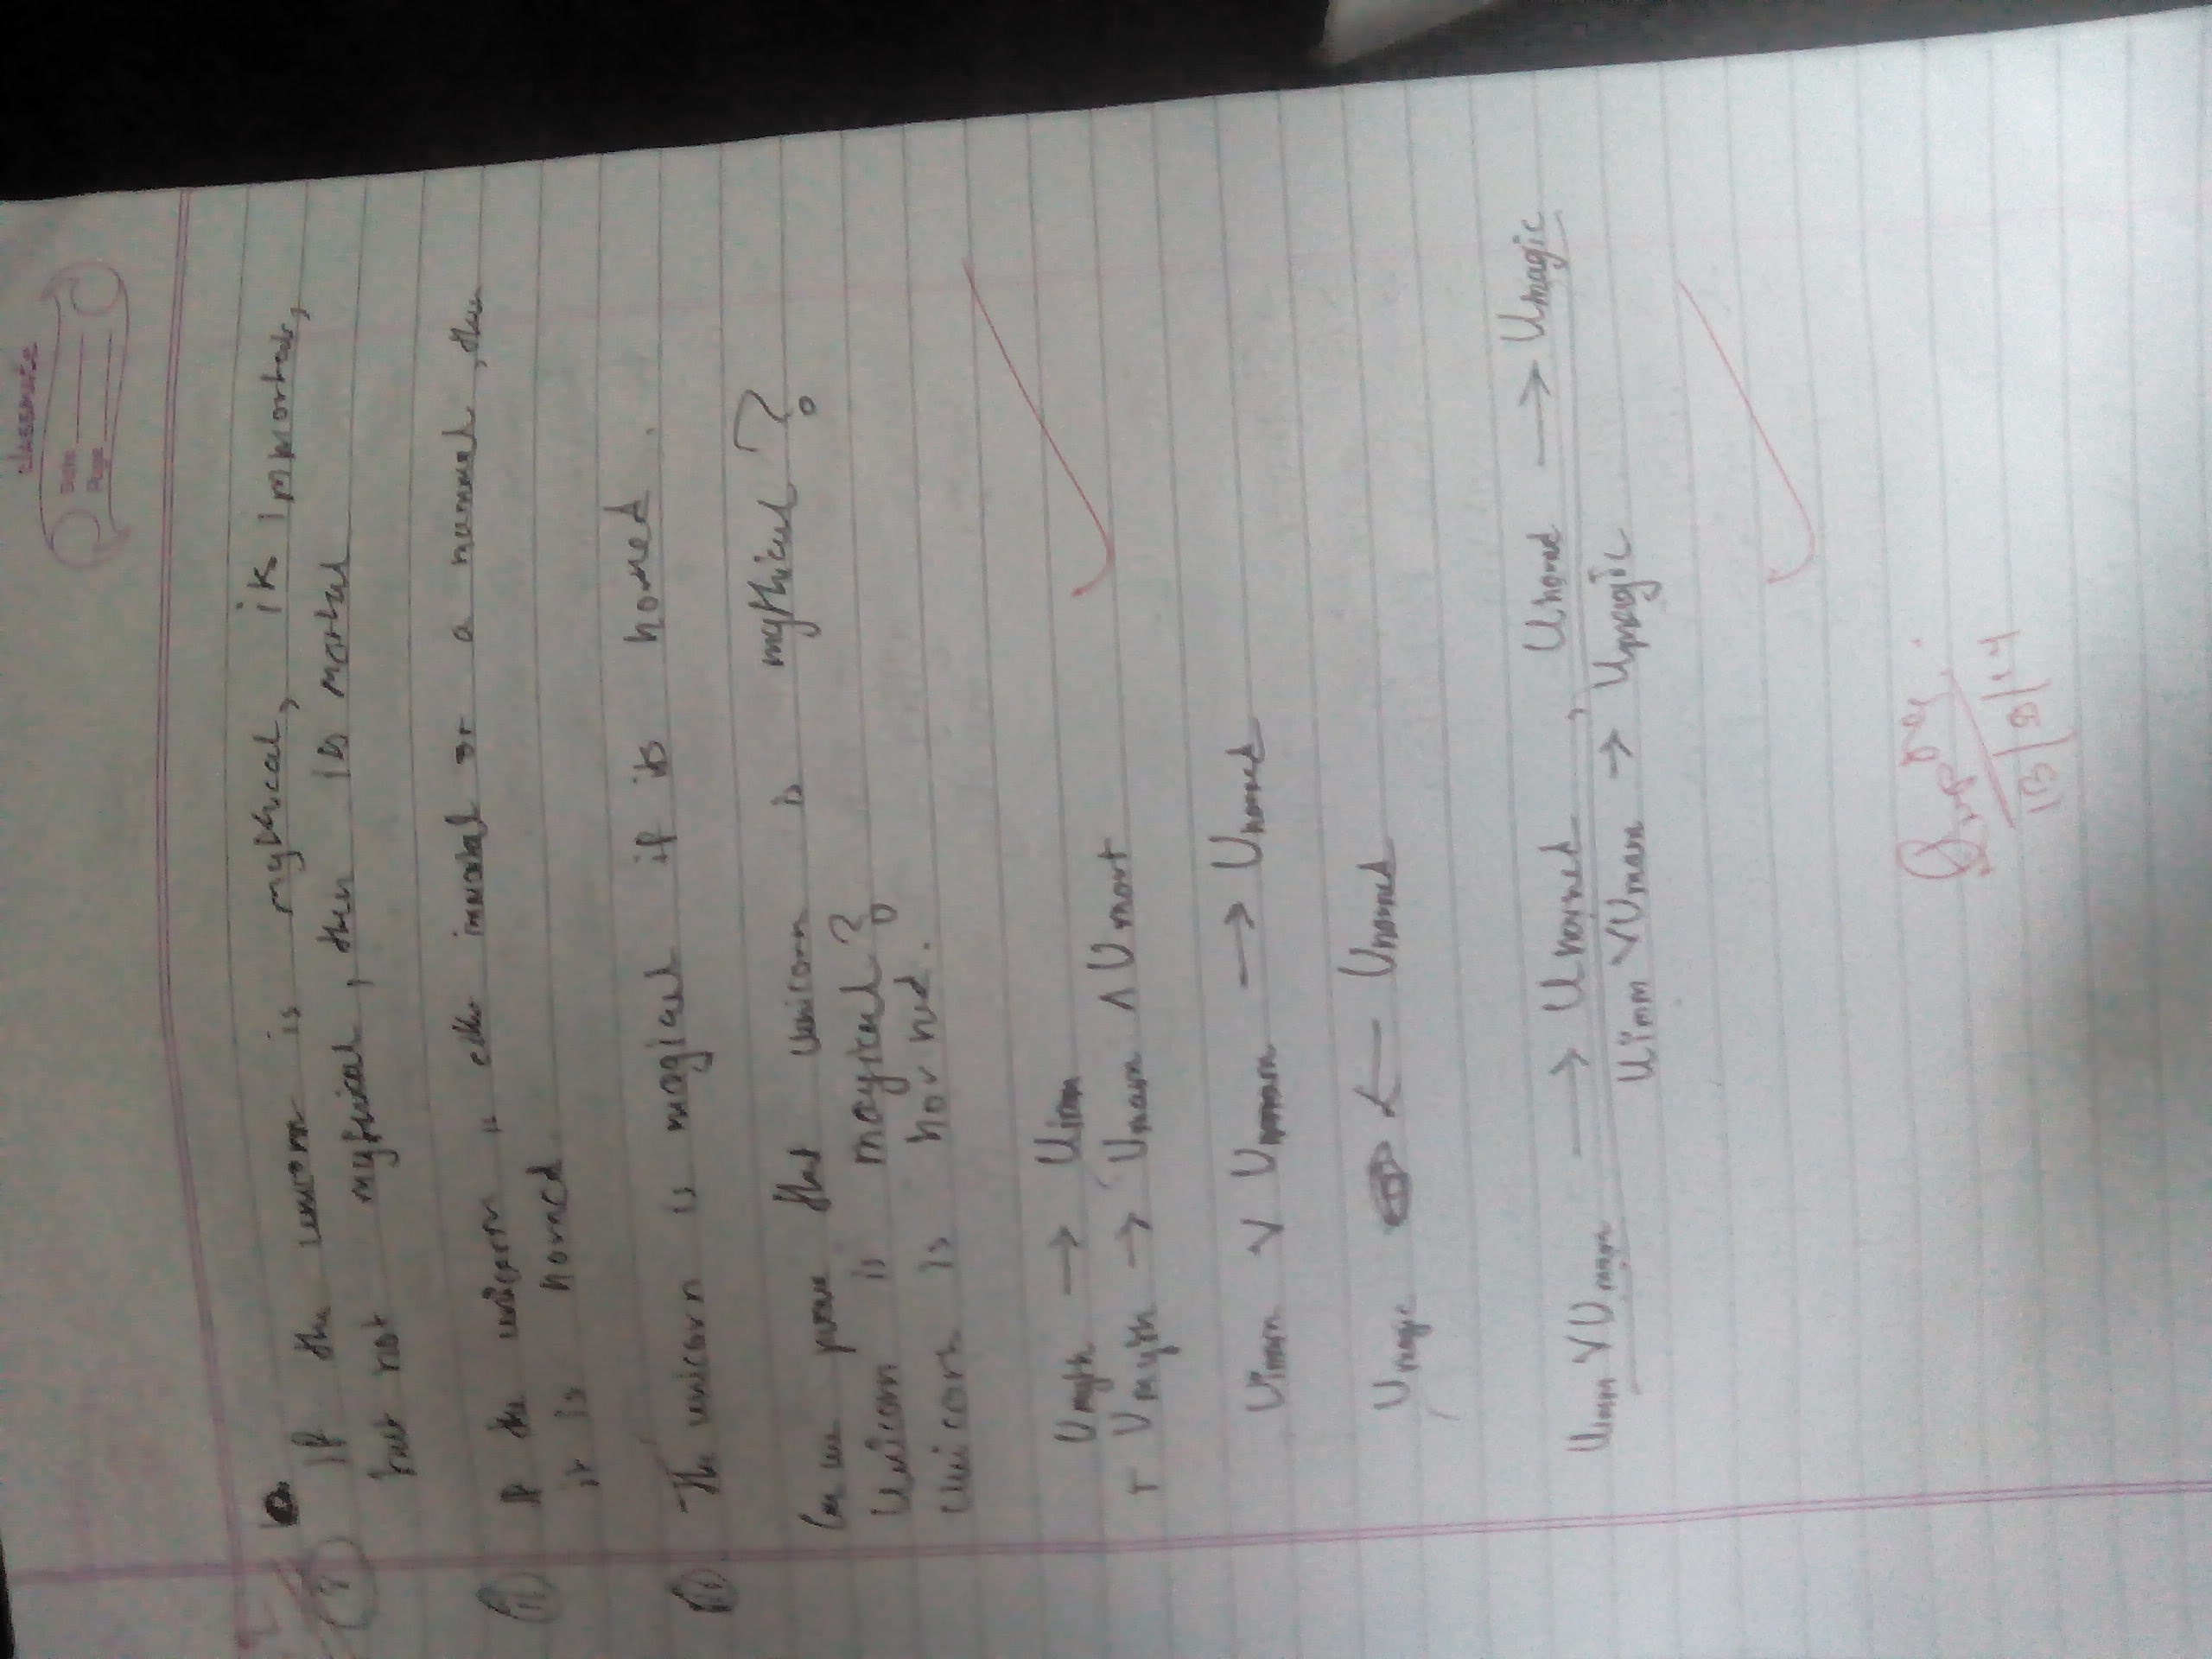 classmate
Date
Page
(i) If the unicorn is mythical, it is immortal,
but not mythical, then is mortal
(ii) If the unicorn is either immortal or a mammal, then
it is horned
(iii) The unicorn is magical if it is horned.
Can we prove that unicorn is mythical?
Unicorn is magical?
Unicorn is horned.
Umyth → Uimm
¬ Umyth → Umam ∧ Umort
Uimm ∨ Umam → Uhorned
Umagic ← Uhorned
Uimm ∨ Umam → Uhorned, Uhorned → Umagic
Uimm ∨ Umam → Umagic
13/8/14